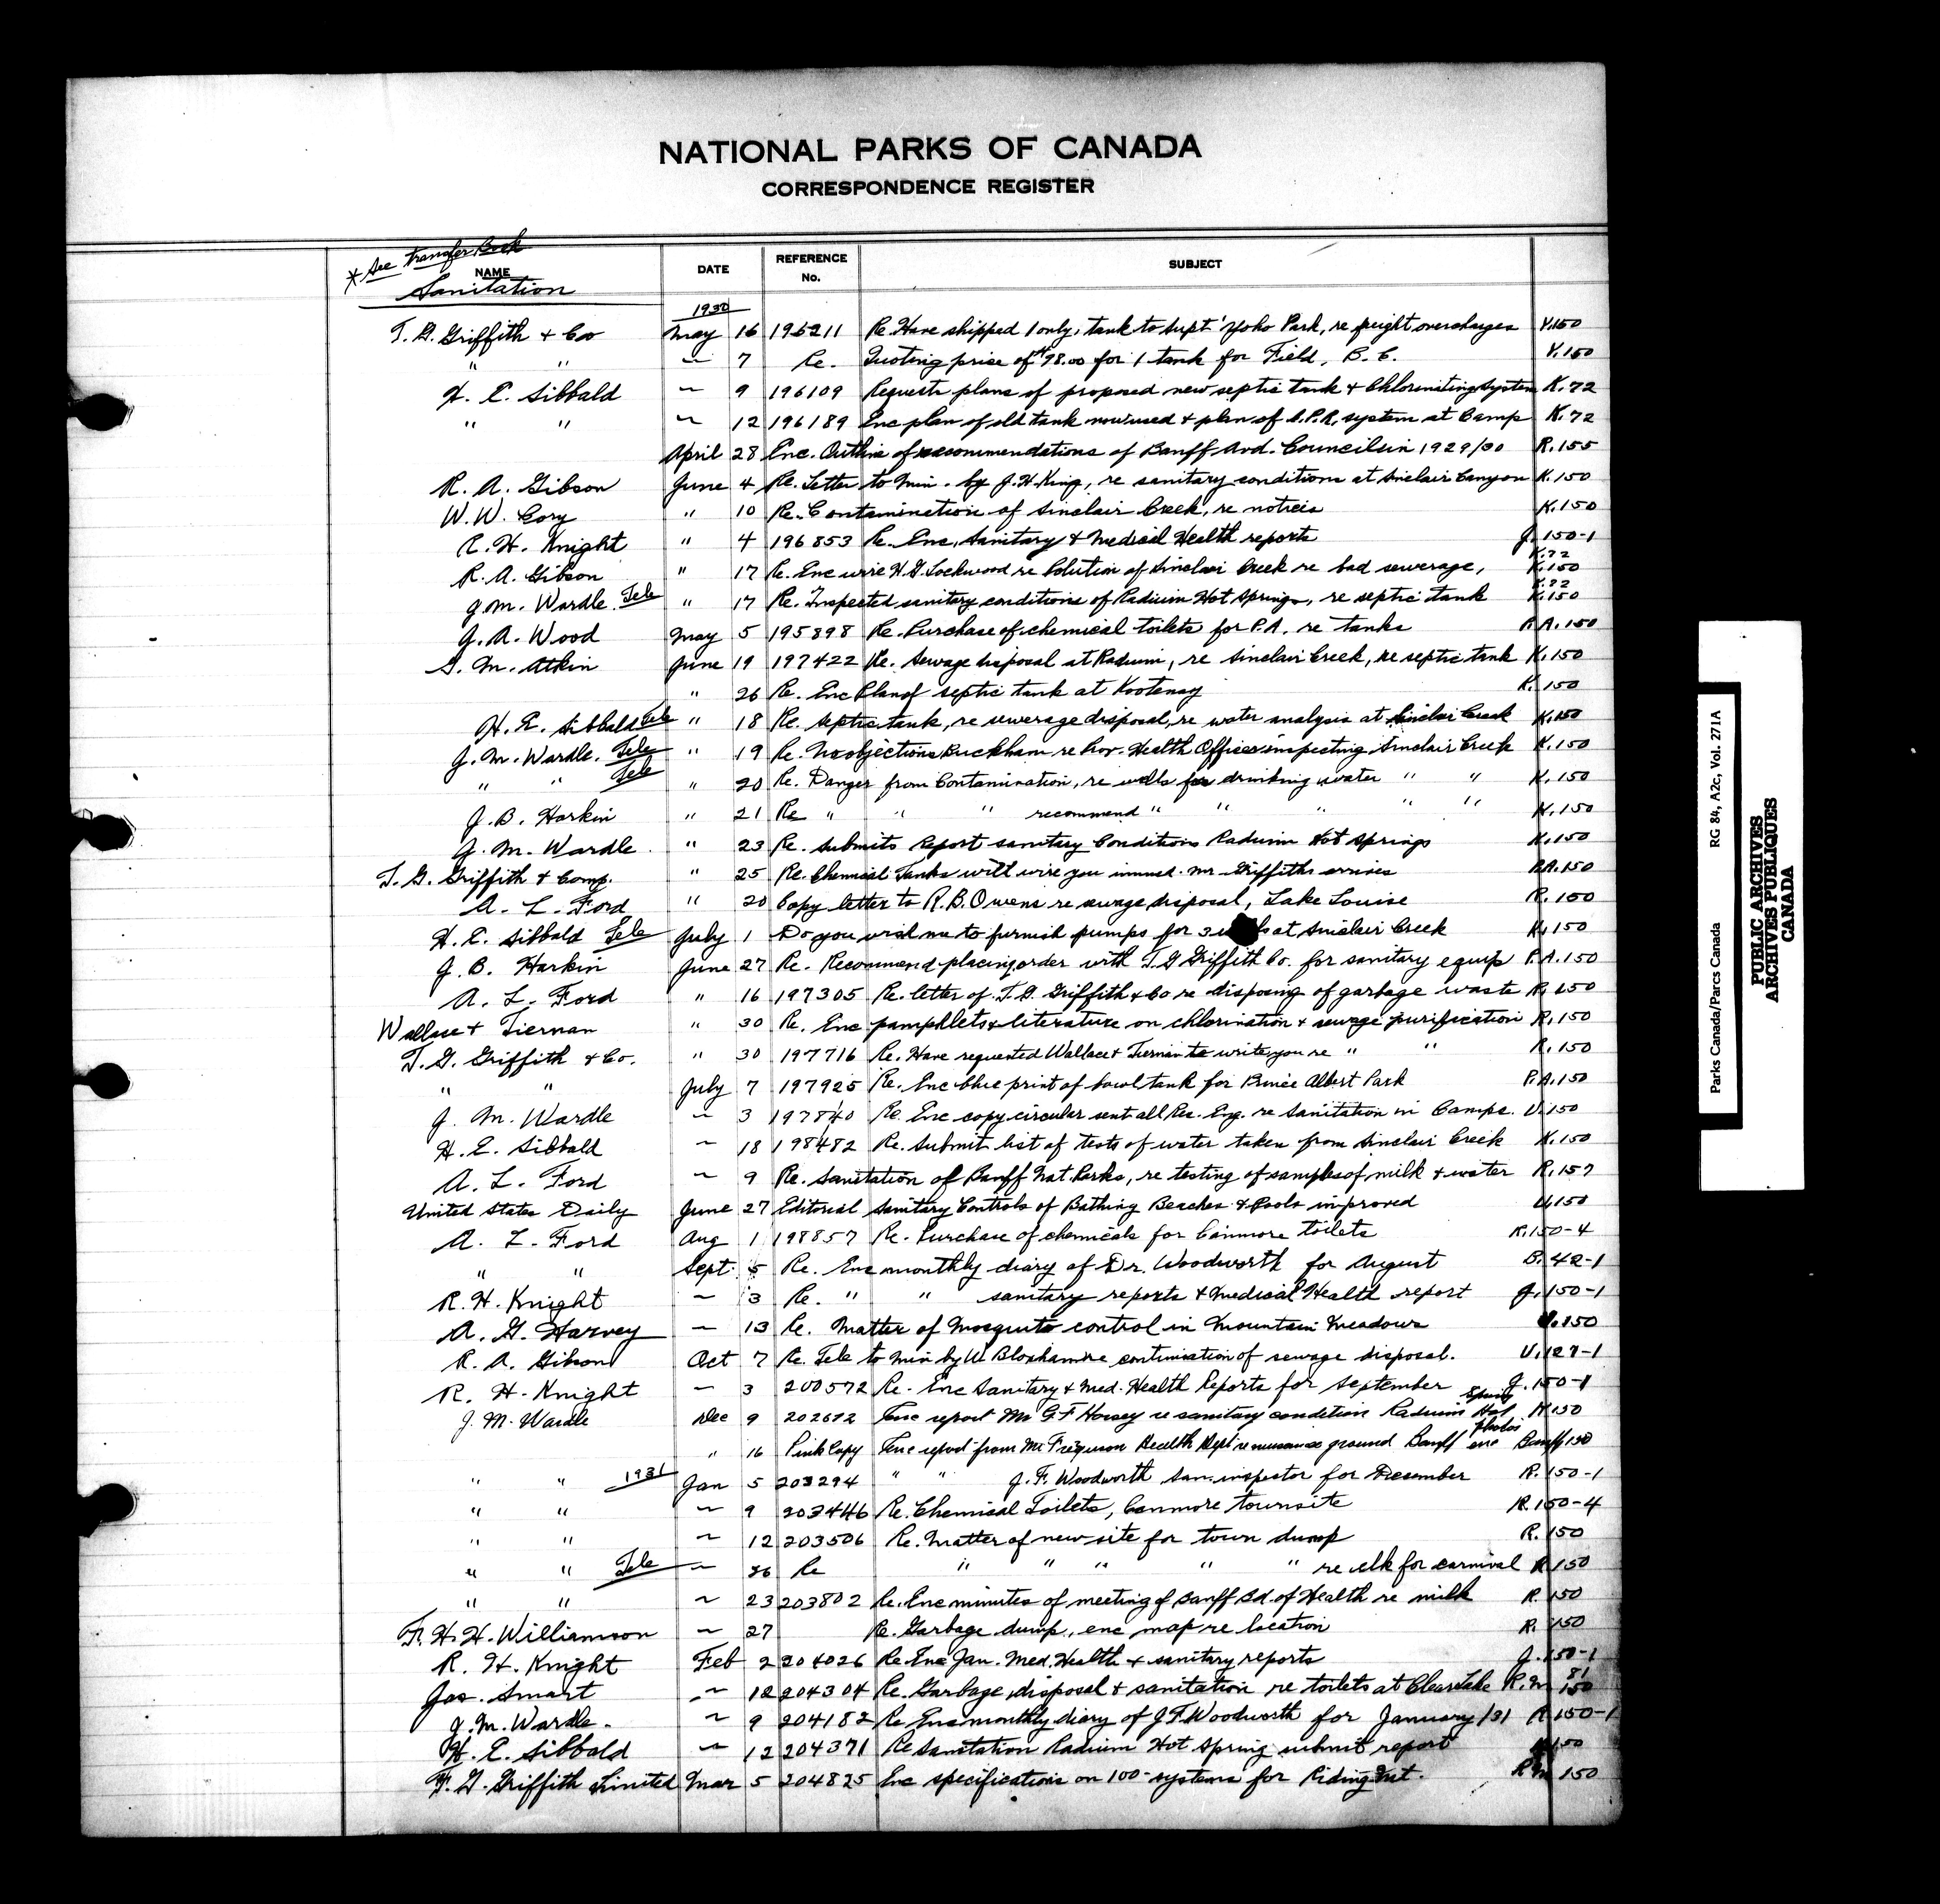 NATIONAL PARKS OF CANADA
CORRESPONDENCE REGISTER
* See transfer Book
NAME DATE REFERENCE No. SUBJECT
Sanitation
1930
T. G. Griffith & Co May 16 196211 Re. Have shipped 1 only, tank to Supt. Yoho Park, re freight overcharges Y.150
" " ~ 7 Re. Quoting price of $98.00 for 1 tank for Field, B.C. Y.150
H. E. Sibbald ~ 9 196109 Requests plans of proposed new septic tank & Chlorinating System K.72
" " ~ 12 196189 Enc plan of old tank now used & plan of C.P.R. system at Camp K.72
April 28 Enc. Outline of recommendations of Banff Avd. Councils in 1929/30 R.155
R. A. Gibson June 4 Re. Letter to Min. by J. H. King, re sanitary conditions at Sinclair Canyon K.150
W. W. Cory " 10 Re. Contamination of Sinclair Creek, re notices K.150
R. H. Knight " 4 196853 Re. Enc. Sanitary & Medical Health reports J.150-1
R. A. Gibson " 17 Re. Enc wire H. G. Lockwood re Polution of Sinclair Creek re bad sewerage, K.72 K.150
J. M. Wardle. Tele " 17 Re. Inspected sanitary conditions of Radium Hot Springs, re septic tank K.72 K.150
J. A. Wood May 5 195898 Re. Purchase of chemical toilets for P.A. re tanks P.A.150
G. M. Atkin June 19 197422 Re. Sewage disposal at Radium, re Sinclair Creek, re septic tank K.150
" 26 Re. Enc Plan of septic tank at Kootenay K.150
H. E. Sibbald Tele " 18 Re. septic tank, re sewerage disposal, re water analysis at Sinclair Creek K.150
J. M. Wardle. Tele " 19 Re. No objections Buckham re Prov. Health Officer inspecting Sinclair Creek K.150
" " Tele " 20 Re. Danger from Contamination, re wells for drinking water " " K.150
J. B. Harkin " 21 Re " " " recommend " " " " " K.150
J. M. Wardle. " 23 Re. Submits Report sanitary Conditions Radium Hot Springs K.150
T. G. Griffith & Comp. " 25 Re. Chemical Tanks will wire you immed. Mr Griffiths arrives P.A.150
A. L. Ford " 20 Copy letter to R. B. Owens re sewage disposal, Lake Louise R.150
H. E. Sibbald Tele July 1 Do you wish me to furnish pumps for 3 at Sinclair Creek K.150
J. B. Harkin June 27 Re. Recommend placing order with T. G Griffith Co. for sanitary equip P.A.150
A. L. Ford " 16 197305 Re. letter of T. G. Griffith & Co re disposing of garbage waste R.150
Wallace & Tiernan " 30 Re. Enc pamphlets & literature on chlorination & sewage purification R.150
T. G. Griffith & Co. " 30 197716 Re. Have requested Wallace & Tiernan to write you re " " R.150
" " July 7 197925 Re. Enc blue print of bowl tank for Prince Albert Park P.A.150
J. M. Wardle ~ 3 197840 Re. Enc copy circular sent all Res. Eng. re Sanitation in Camps. U.150
H. E. Sibbald ~ 18 198482 Re. Submit list of tests of water taken from Sinclair Creek K.150
A. L. Ford ~ 9 Re. Sanitation of Banff Nat. Parks, re testing of samples of milk & water R.157
United States Daily June 27 Editorial Sanitary Controls of Bathing Beaches & Pools improved U.150
A. L. Ford Aug 1 198857 Re. Purchase of chemicals for Canmore toilets R.150-4
" " Sept. 5 Re. Enc monthly diary of Dr. Woodworth for August B.42-1
R. H. Knight ~ 3 Re. " " sanitary reports & Medical Health report J.150-1
A. G. Harvey ~ 13 Re. Matter of Mosquito control in Mountain Meadows U.150
R. A. Gibson Oct 7 Re. Tele to Min by W. Bloxham re continuation of sewage disposal. U.127-1
R. H. Knight ~ 3 200572 Re. Enc Sanitary & Med. Health Reports for September J.150-1
J. M. Wardle Dec 9 202672 Enc report Mr G F Horsey re sanitary condition Radium Hot Spring K150
" 16 Pink Copy Enc report from Mr Ferguson Health Dept re nuisance ground Banff enc photos Banff 150
" " 1931 Jan 5 203294 " " J. F. Woodworth San. inspector for December R.150-1
" " ~ 9 203446 Re. Chemical Toilets, Canmore townsite R.150-4
" " ~ 12 203506 Re. Matter of new site for town dump R.150
" " Tele ~ 26 Re " " " " " re elk for carnival R.150
" " ~ 23 203802 Re. Enc minutes of meeting of Banff Bd. of Health re milk R.150
F. H. H. Williamson ~ 27 Re. Garbage dump, enc map re location R.150
R. H. Knight Feb 2 204026 Re Enc Jan. Med. Health & sanitary reports J.150-1
Jas. Smart ~ 12 204304 Re. Garbage disposal & sanitation re toilets at Clear Lake R.M 81 150
J. M. Wardle. ~ 9 204182 Re Enc monthly diary of J F. Woodworth for January/31 R.150-1
H. E. Sibbald ~ 12 204371 Re Sanitation Radium Hot Spring submit report K150
T. G. Griffith Limited Mar 5 204825 Enc specifications on 100-systems for Riding Mt. R M 150
Parks Canada/Parcs Canada RG 84, A2c, Vol. 271A
PUBLIC ARCHIVES
ARCHIVES PUBLIQUES
CANADA